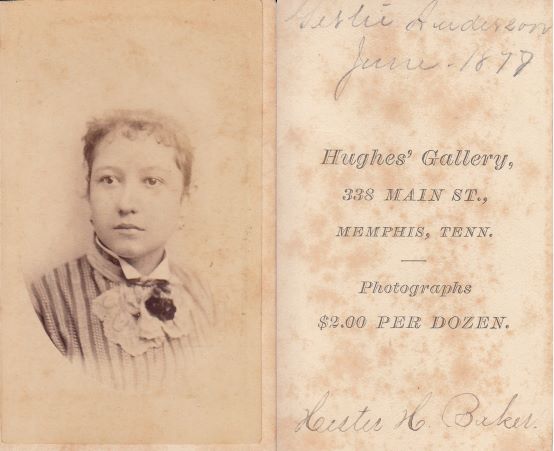 Leslie Anderson
June. 1877
Hughes' Gallery,
338 MAIN ST.,
MEMPHIS, TENN.
Photographs
$2.00 PER DOZEN.
Hester H. Baker.